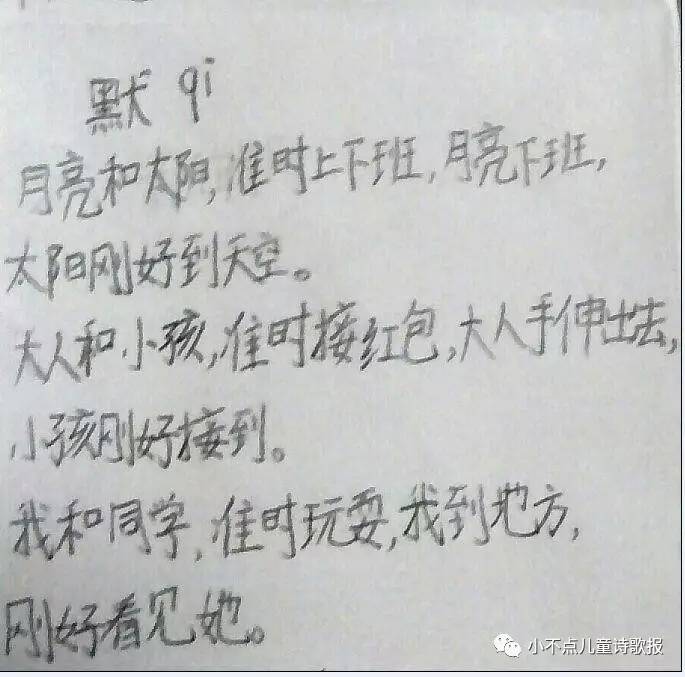 默 qi
月亮和太阳,准时上下班,月亮下班,
太阳刚好到天空。
大人和小孩,准时接红包,大人手伸出去,
小孩刚好接到。
我和同学,准时玩耍,我到地方,
刚好看见她。
小不点儿童诗歌报